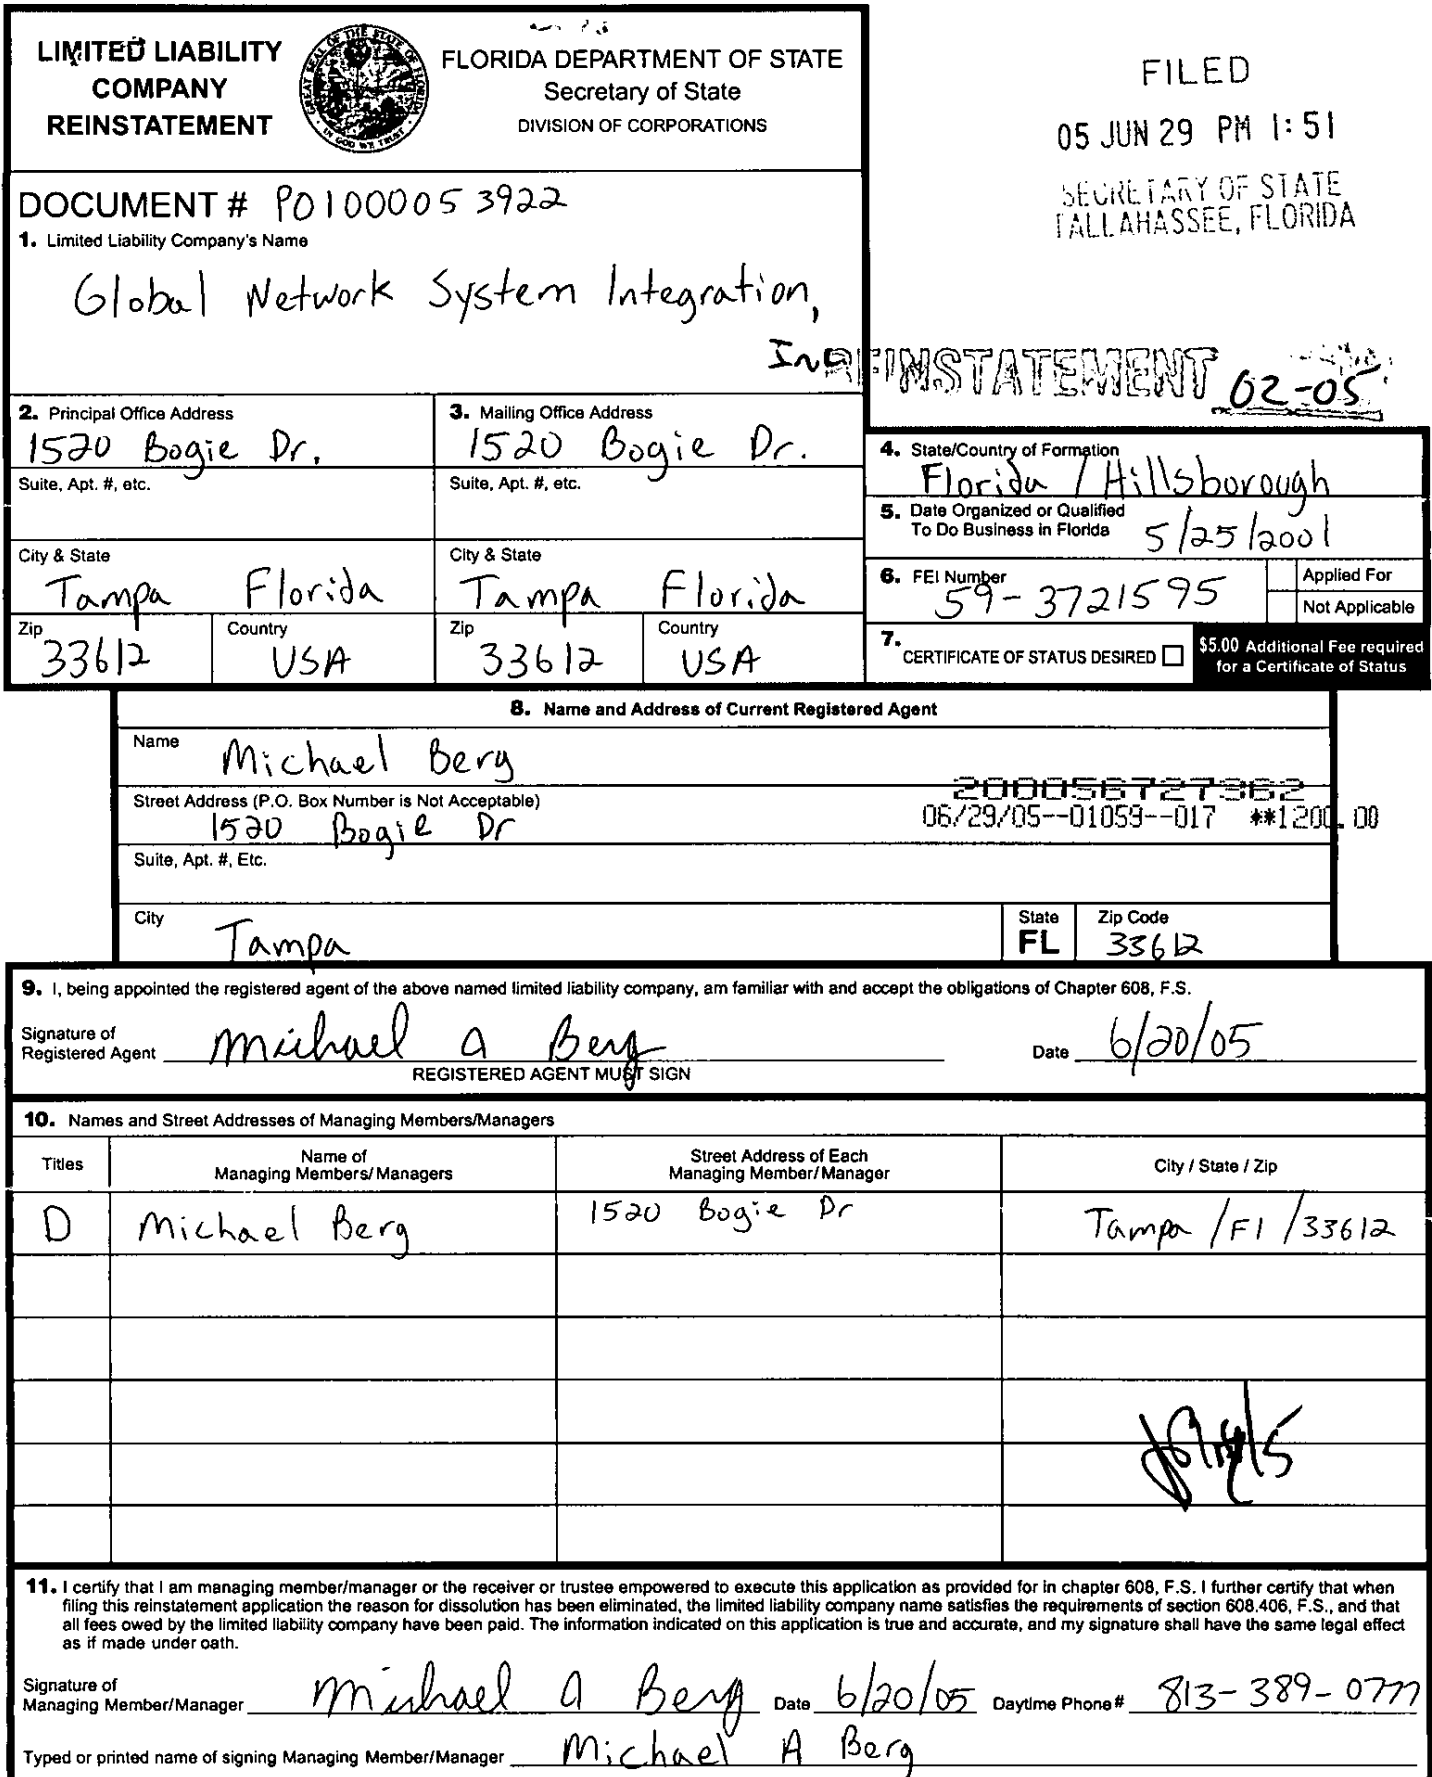 LIMITED LIABILITY
COMPANY
REINSTATEMENT
GREAT SEAL OF THE STATE OF FLORIDA
IN GOD WE TRUST
FLORIDA DEPARTMENT OF STATE
Secretary of State
DIVISION OF CORPORATIONS
FILED
05 JUN 29 PM 1:51
SECRETARY OF STATE
TALLAHASSEE, FLORIDA
DOCUMENT # P01000053922
1. Limited Liability Company's Name
Global Network System Integration,
Inc
REINSTATEMENT 02-05
2. Principal Office Address
1520 Bogie Dr.
Suite, Apt. #, etc.
City & State
Tampa Florida
Zip
33612
Country
USA
3. Mailing Office Address
1520 Bogie Dr.
Suite, Apt. #, etc.
City & State
Tampa Florida
Zip
33612
Country
USA
4. State/Country of Formation
Florida / Hillsborough
5. Date Organized or Qualified
To Do Business in Florida 5/25/2001
6. FEI Number
59-3721595
Applied For
Not Applicable
7. CERTIFICATE OF STATUS DESIRED
$5.00 Additional Fee required
for a Certificate of Status
8. Name and Address of Current Registered Agent
Name Michael Berg
Street Address (P.O. Box Number is Not Acceptable)
1520 Bogie Dr
200056727362
06/29/05--01059--017 **1200.00
Suite, Apt. #, Etc.
City Tampa
State
FL
Zip Code
33612
9. I, being appointed the registered agent of the above named limited liability company, am familiar with and accept the obligations of Chapter 608, F.S.
Signature of
Registered Agent Michael A Berg Date 6/20/05
REGISTERED AGENT MUST SIGN
10. Names and Street Addresses of Managing Members/Managers
Titles
Name of
Managing Members/Managers
Street Address of Each
Managing Member/Manager
City / State / Zip
D Michael Berg 1520 Bogie Dr Tampa /Fl /33612
11. I certify that I am managing member/manager or the receiver or trustee empowered to execute this application as provided for in chapter 608, F.S. I further certify that when
filing this reinstatement application the reason for dissolution has been eliminated, the limited liability company name satisfies the requirements of section 608.406, F.S., and that
all fees owed by the limited liability company have been paid. The information indicated on this application is true and accurate, and my signature shall have the same legal effect
as if made under oath.
Signature of
Managing Member/Manager Michael A Berg Date 6/20/05 Daytime Phone # 813-389-0777
Typed or printed name of signing Managing Member/Manager Michael A Berg